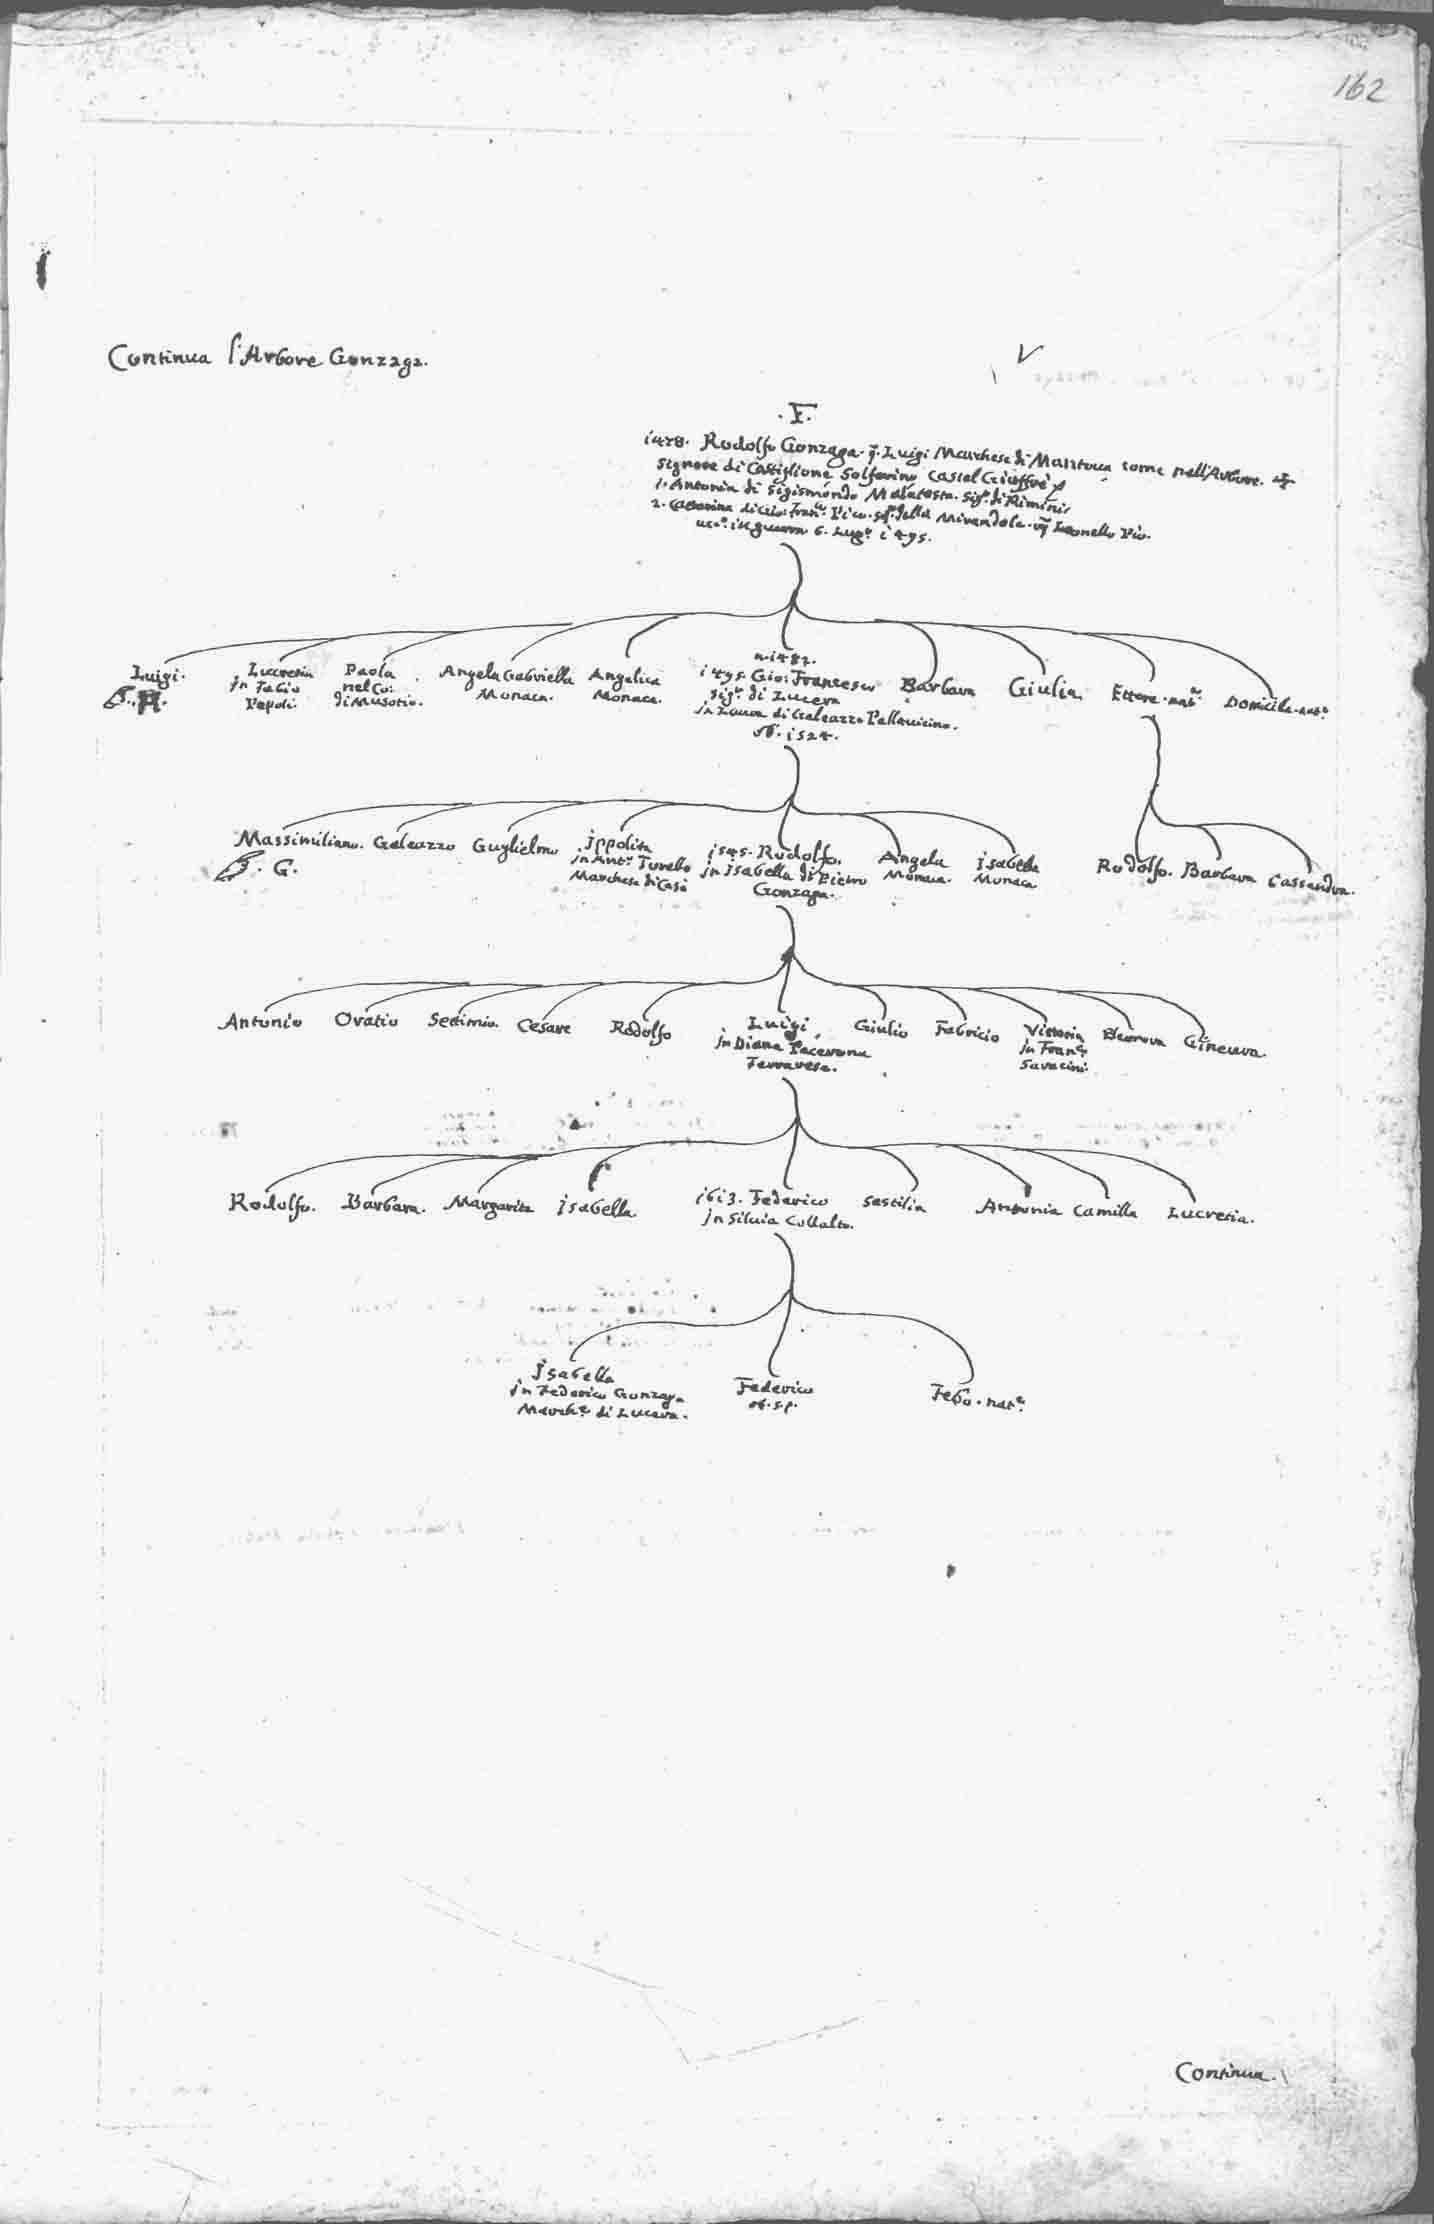 162
Continua l'Arbore Gonzaga.
V
.F.
1478. Rodolfo Gonzaga q. Luigi Marchese di Mantova come nell'Arbore.
Signore di Castiglione Solferino Castel Giuffrè
1. Antonia di Sigismondo Malatesta. Sigr. di Rimini
2. Catterina di Gio: Franco. Pico. Sigr. della Mirandola. Leonello Pio.
ucco. in guerra 6. Lugo. 1495.
Luigi.
H.
Lucretia
in Fatio
Pepoli.
Paola
nel Co:
di Musocio.
Angela Gabriella
Monaca.
Angelica
Monaca.
n. 1482.
1495. Gio: Francesco
Sigr. di Lucera
in Laura di Galeazzo Pallavicino.
ob. 1524.
Barbara
Giulia
Ettore. nate.
Domicilla. nate.
Massimiliano.
. G.
Galeazzo
Guglielmo
jppolita
in Anto. Torello
Marchese di Casa
1545. Rodolfo.
in jsabella di Pietro
Gonzaga.
Angela
Monaca.
jsabella
Monaca
Rodolfo.
Barbara
Cassandra.
Antonio
Oratio
Settimio.
Cesare
Rodolfo
Luigi
in Diana
Ferrarese.
Giulio
Fabricio
Vittoria
in Franco
Saracini.
Eleonora
Gineura.
Rodolfo.
Barbara.
Margarita
jsabella.
1613. Federico
in Siluia Collalto.
Sestilia
Antonia
Camilla
Lucretia.
jsabella
in Federico Gonzaga
Marche. di Lucera.
Federico
ob. s.p.
Febo. nate.
Continua.